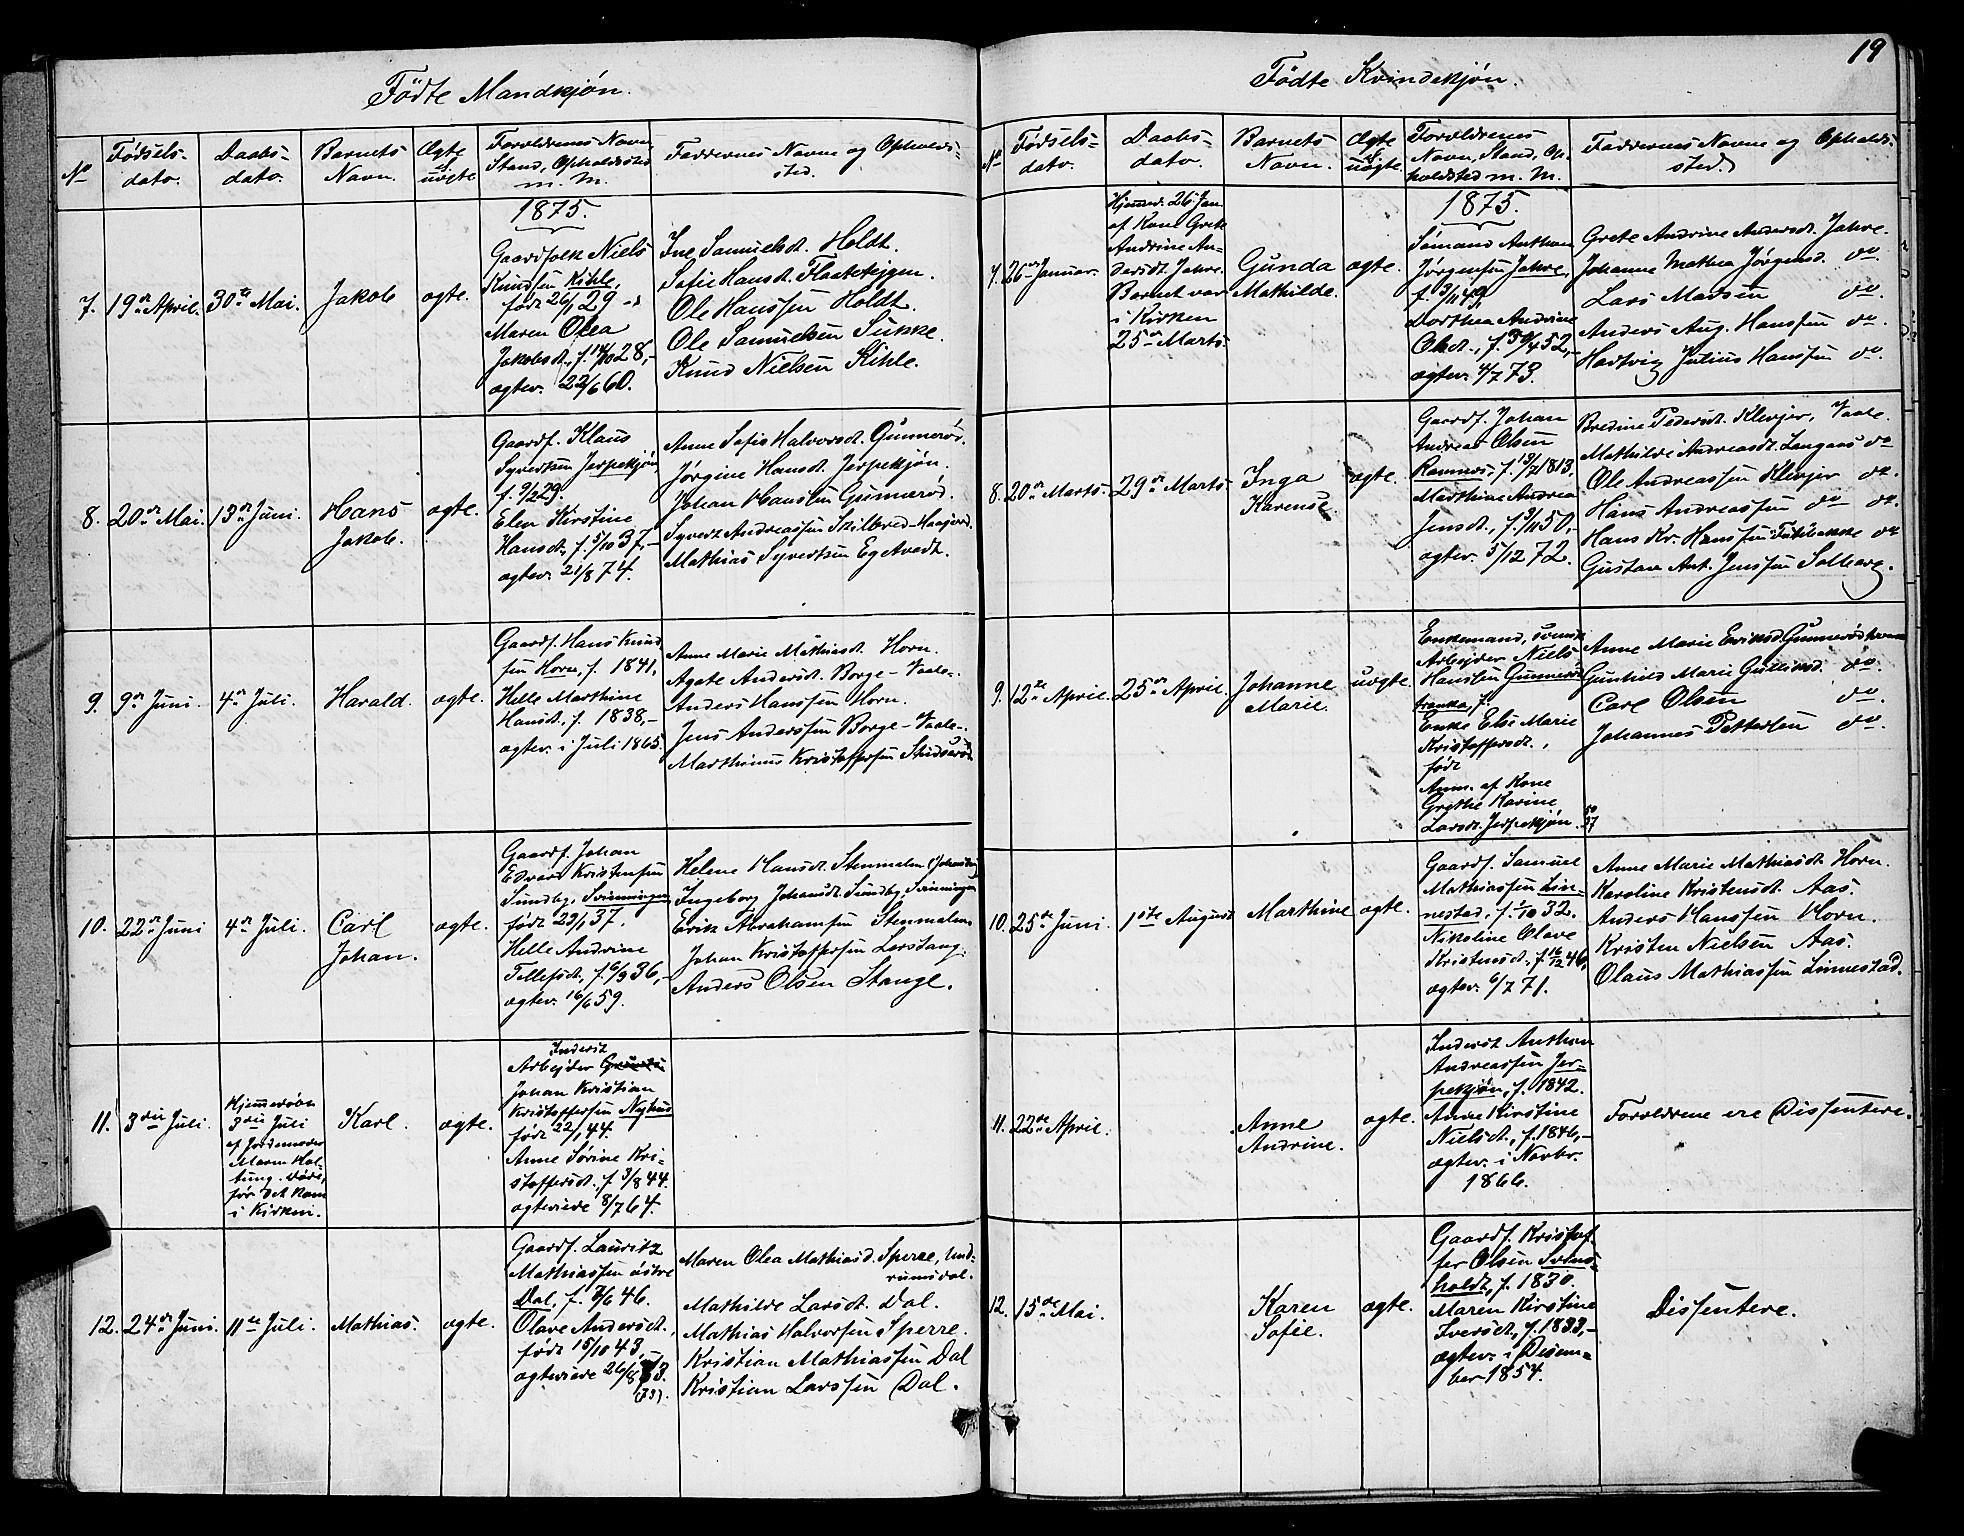 19
Födte Mandkjön.
No
Födsels-
dato.
Daabs-
dato.
Barnets
Navn.
Ægte
el.
uægte
Forældrenes Navn,
Stand, Opholdssted
m. M.
Faddernes Navne og Opholds-
sted.
1875.
7.
19de April.
30te Mai.
Jakob
ægte.
Gaardfolk Niels
Knudsen Kihle,
født 26/1 29 -,
Maren Olea
Jakobsd., f. 14/10 28,-
ægtev. 22/6 60.
Ine Samuelsd. Holdt.
Sofie Hansd. Flaateiggen.
Ole Hanssen Holdt.
Ole Samuelsen Sukke.
Knud Nielsen Kihle.
8.
20de Mai.
13de Juni.
Hans
Jakob.
ægte.
Gaardf. Klaus
Syvertsen Jerpekjön
f. 9/2 29.
Elen Kirstine
Hansd., f. 5/10 37,-
ægtev. 21/8 74.
Anne Sofie Halvorsd. Gunnerød.
Jørgine Hansd. Jerpekjøn.
Johan Hanssen Gunnerød.
Syvert Andreassen Skilbred-Haajord.
Mathias Syvertsen Eg Avedt.
9.
9de Juni.
4de Juli.
Harald.
ægte.
Gaardf. Hans Knud-
sen Horn, f. 1841,
Helle Marthine
Hansd., f. 1838,-
ægtev. i Juli 1865.
Anne Marie Mathiasd. Horn.
Agate Andersd. Borge-Vaale-.
Anders Hanssen Horn.
Jens Anderssen Borge-Vaale-.
Marthinus Kristoffersen
10.
22de Juni
4de Juli.
Carl
Johan.
ægte.
Gaardf. Johan
Edvard Kristensen
Sundby, Svinningen
født 29/1 37.
Helle Andrine
Tellefsd., f. 6/9 36,-
ægtev. 16/6 59.
Helene Hansd. Stenmalen
Ingeborg Johansd. Sundby Svinningen
Erik Abrahamsen Stenmalen
Johan Kristoffersen Lerstang.
Anders Olsen Stange.
11.
3die Juli.
Hjemmedøbt
3die Juli
af Jordemoder
Maren Hol-
tung. Døde,
før det kom
i Kirken.
Karl.
ægte.
Inderst
Arbejder
Johan Kristian
Kristoffersen Nyhus
født 22/1 44.
Anne Sørine Kri-
stoffersd., f. 3/8 44.
ægteviede 8/7 64.
12.
24de Juni.
11te Juli.
Mathias.
ægte.
Gaardf. Lauritz
Mathiassen østre
Dal, f. 3/6 46.
Olave Andersd.,
født 15/10 43,-
ægteviede 26/8 73.
(73).
Maren Olea Mathiasd. Sperre, Und-
rumsdal.
Mathilde Larsd. Dal.
Mathias Halvorsen Sperre.
Kristian Mathiassen Dal
Kristian Larssen Dal.
Födte Kvindekjön.
No
Fødsels-
dato.
Daabs-
dato.
Barnets
Navn.
Ægte
el.
uægte.
Forældrenes
Navn, Stand, Op-
holdsted m. M.
Faddernes Navne og Opholds-
sted.
1875.
7.
26de Januar.
Hjemmed. 26 Jan.
af Kone Grete
Andrine An-
dersd. Jahre.
Barnet var
i Kirken
25de Marts.
Gunda
Mathilde.
ægte.
Sømand Anthon
Jørgensen Jahre,
f. 3/11 49,
Dorthea Andrine
Olsd., f. 30/4 52,-
ægtev. 4/7 73.
Grete Andrine Andersd. Jahre.
Johanne Mathea Jørgensd. do.
Lars Madsen do.
Anders Aug. Hanssen do.
Hedvig Julius Hanssen do.
8.
20de Marts.
29de Marts.
Inga
Karense.
ægte.
Gaardf. Johan
Andreas Olsen
Ramnes, f. 13/2 1813,
Marthine Andrea
Jensd., f. 3/11 50,-
ægtev. 5/12 72.
Bredine Pedersd. Klevjer, Vaale.
Mathilde Andreasd. Langaas do
Ole Andreassen Klevjer do.
Hans Andreassen do do.
Hans Kr. Hanssen do
Gustav Ant. Jenssen Solberg.
9.
12te April.
25de April.
Johanne
Marie.
uægte.
Enkemand, svensk
Arbejder Niels
Hanssen Gunnerød-
f.
Enke Else Marie
Kristoffersd.,
født
Anm. af Kone
Grethe Karine
Larsd. Jerpekjøn.
Anne Marie Eriksd. Gunnerød
Gunhild Marie Gulliksd. do.
Carl Olsen do.
Johannes Pettersen do.
10.
25de Juni.
1ste August
Marthine
ægte.
Gaardf. Samuel
Mathiassen Lin-
nestad, f. 1/10 32.
Nikoline Olave
Kristensd., f. 16/12 46,
ægtev. 6/7 71.
Anne Marie Mathiasd. Horn.
Karoline Kristensd. Aas.
Anders Hanssen Horn.
Kristen Nielsen Aas.
Olaus Mathiassen Linnestad.
11.
22de April.
Anne
Andrine.
ægte.
Inderst Anthon
Andreassen Jer-
pekjøn, f. 1842.
Anne Kirstine
Nielsd., f. 1846,-
ægtev. i Novbr.
1866.
Forældrene ere Dissentere.
12.
15de Mai.
Karen
Sofie.
ægte.
Gaardf. Kristof-
fer Olsen Svens-
holdt, f. 1830.
Maren Kirstine
Iversd., f. 1833,-
ægtev. i Decem-
ber 1854.
Dissentere.